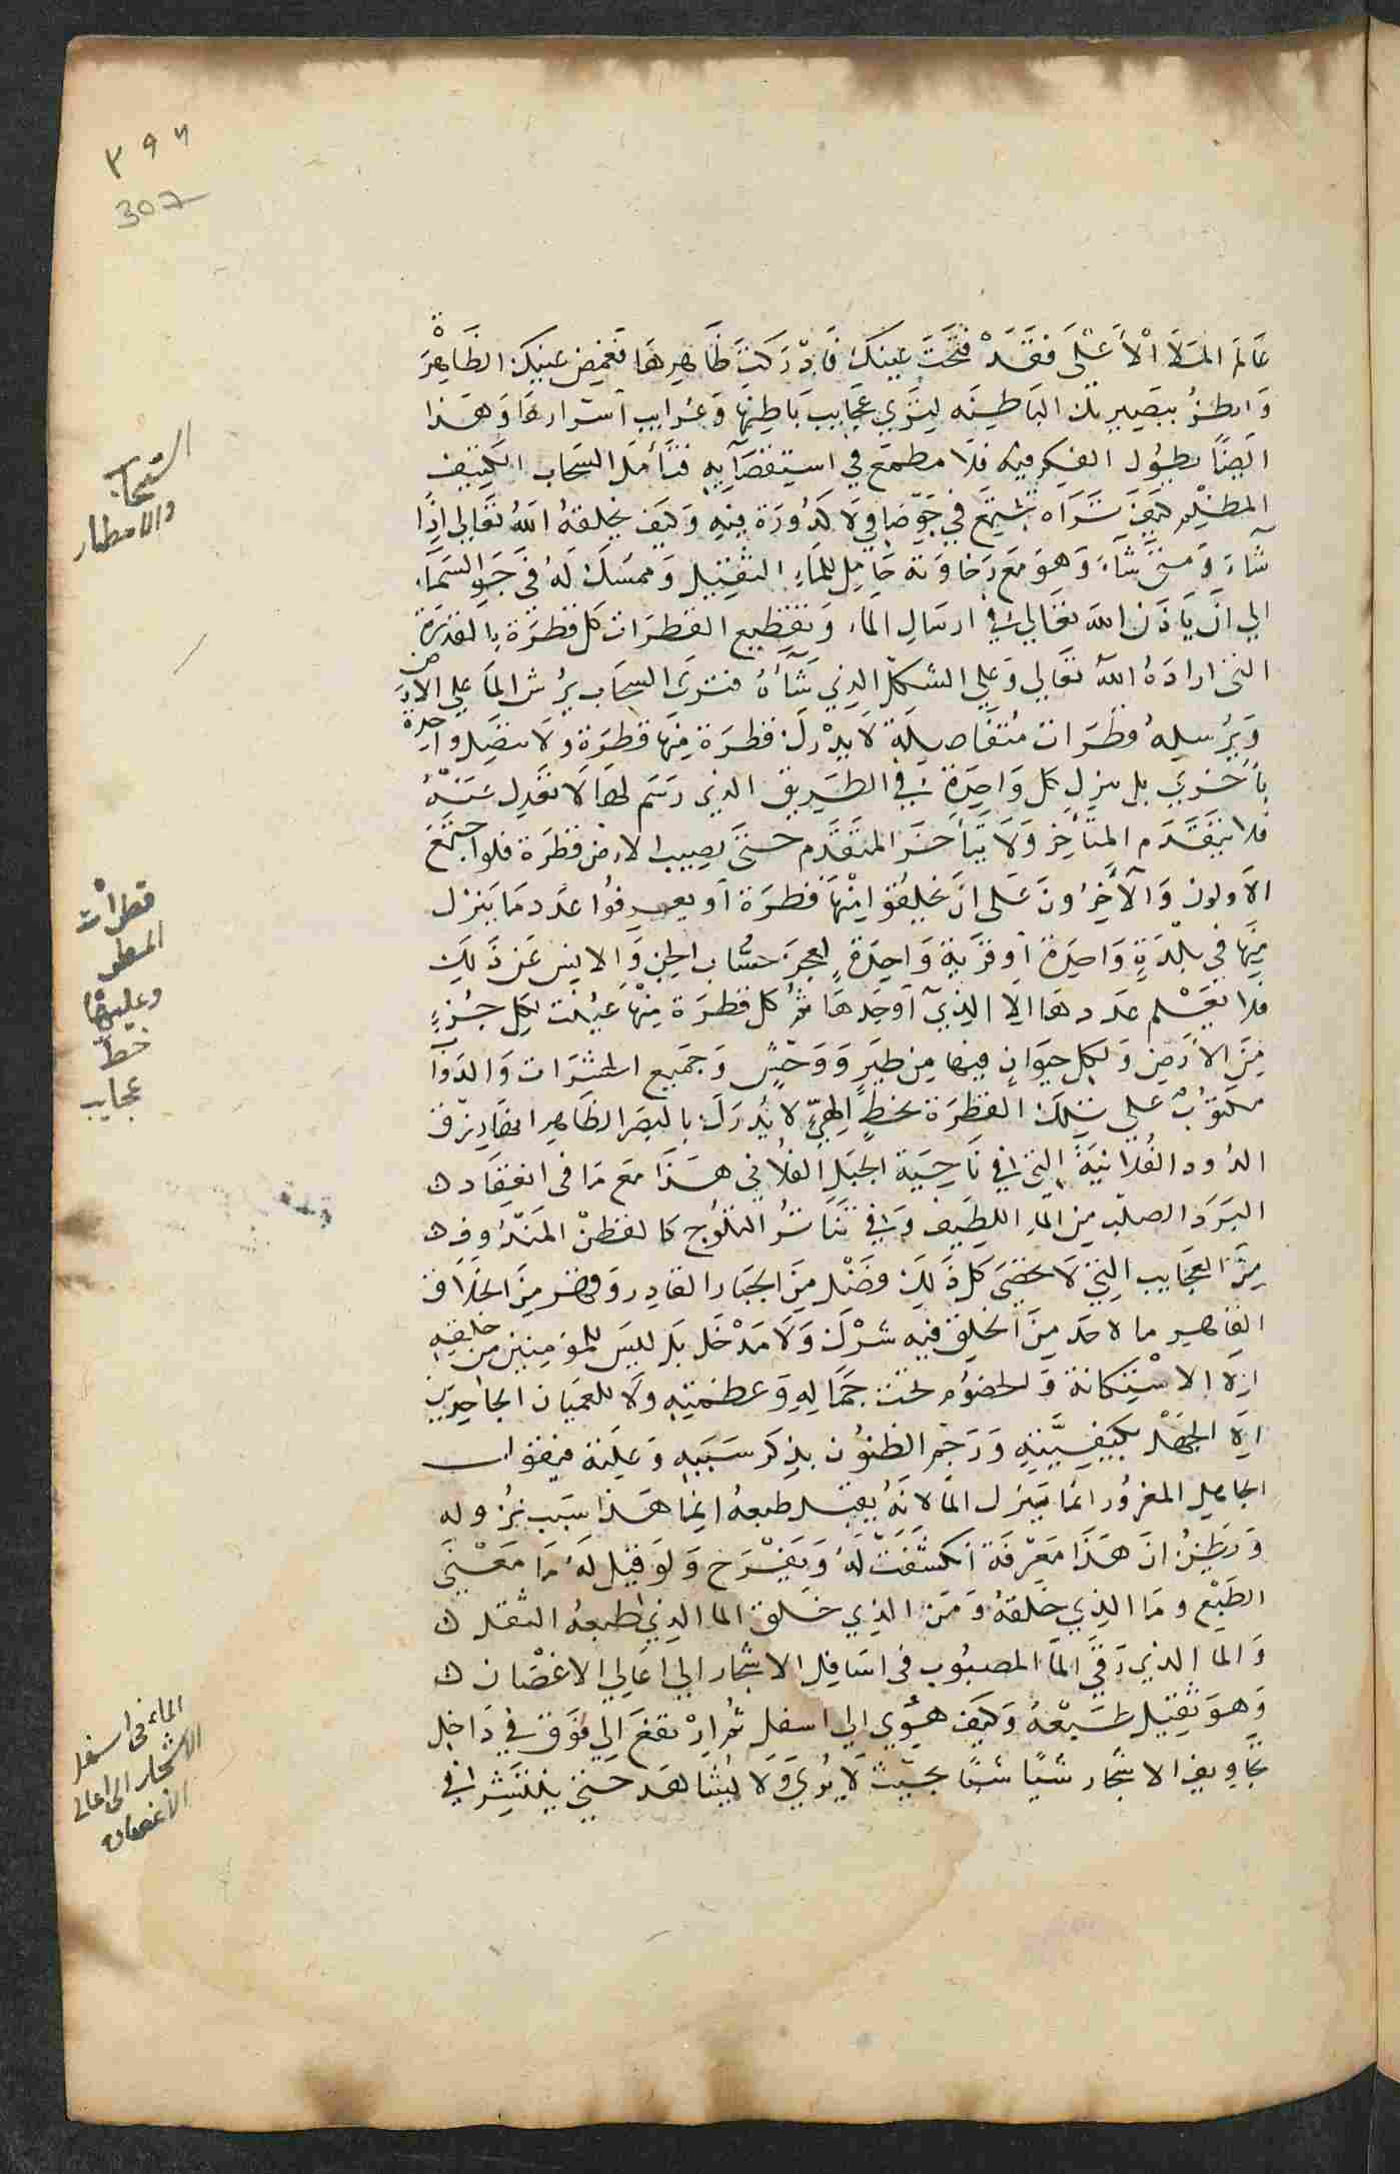 ٣٩٦
307
عَالم المَلَا الْأَعْلَى فقَدْ فَتَحْتَ عينكَ فَادّرَكتَ ظَاهِرهَا فغمض عينكَ الظَاهِرَة
وَانظرُ ببَصيرتك البَاطِنَه لتَري عَجَايبَ بَاطِنهَا وَغرايب اسْرارهَا وَهَذا
ايضًا يطوُل الفِكر فيه فلَا مطمَع في استِقصَآيهِ فتَأمّل السَحَاب الكَثِيف
المظلِم كيَفَ تَرَاه يَجتَمِعُ في جَوّ صَافٍ لَا كدُورَة فيهِ وَكيَف يخلقهُ اللهُ تعَالي اذَا
شَآءَ وَمَتىَ شَآءَ وَهوَ مَعَ رَخاوَته حَامِل للمَآءِ الثقِيل وَممسَك لَهُ في جَو السَمَآءِ
الي انَ يَاذَن اللهَ تعَالي في ارسَالِ المَآءِ وَتقطِيع القطَرَات كل قطرَة بالقدَر
الذي ارادَهُ اللهُ تعَالي وَعَلي الشكلِ الذِي شَآءَهُ فتَرىَ السحَاب يرُش المَآ علي الارَض
وَيرُسِلهُ قطَرَات مُتفَاصِلَة لَا يدْرك قطرَة مِنهَا قطرَة وَلَا تتصَل واحِدة
بأخرَي بل ينزل كل وَاحِدَة في الطَرِيق الذِي رسَم لهَا لَا تعَدِل عَنهُ
فلا يتقَدَم المتأخِر وَلَا يَتأخَر المتقَدّم حَتىَ يصِيب الارض قطرَة قطرة فلو اجتَمَعَ
الاَولون وَالآخَرُونَ عَلى انَ يخلِقوُا مِنْهَا قطرَة اَو يعرِفوُا عَدد مَا يَنزل
مِنهَا في بلْدَةٍ وَاحِدَة اَو قريَةٍ وَاحِدَةٍ لعجزَ حسَاب الجِن وَالانِس عَن ذَلكَ
فلا يَعْلم عَددهَا الا الذِيَ اَوجَدهَا ثمُ كل قطرَة مِنْهَا عُيّنَت لكِل جُزءٍ
مِنَ الأَرَضِ وَلكِل حيَوَانٍ فيهَا مِن طيَرٍ وَوَحشٍ وَجمَيع الحشَرَات وَالدَوَاب
مكتوُبٌ علي تِلكَ القطرَة بخطٍ الهيّ لا يُدرَك بالبصَر الظَاهِر انهَا رِزق
الدُود الفُلَانيَةِ التي في نَاحِيَة الجَبَل الفلَاني هَذَا مَعَ مَا في انعِقَاد
البَرَد الصلب مِن المَآءِ اللطَيِف وَفي تَنَاثُر الثلوُج كالقطنْ المَندُوف
مِنَ العجَايب التِي لَا تحصَى كل ذَلكِ فضْل مِنَ الجَبَار القادِر وَقهر مِنَ الخَلَاق
القاهِر ما لاحَد مِنَ الخلِق فيهِ شرْك وَلَا مَدْخَل بَل ليسَ للمؤمِنِين مِن خلقِهِ
الَا الاسْتِكَانة وَالخضوُع تحَت جَلَالِهِ وَعظمتِهِ وَلَا للعميَان الجَاحِدِين
الَا الجهَلْ بكيفِيَّتهِ وَرَجَم الظنوُن بذِكر سَبَبهِ وَعِلَته فيقوُل
الجَاهِل المغرُور انمَا يَنزل المَآ لانَهُ ثقِيل بطبعهِ انِمَا هَذا سَبَب نزُوله
وَيظنُ انَ هَذَا مَعْرفَة انكشَفَتَ لَهُ وَيَفْرَح وَلوَ قيَل لَهُ مَا مَعْنيَ
الطَبْع وَمَا الذِي خَلقهُ وَمَن الذِي خَلق المَا الذِي طبعهُ الثقل
وَمَا الذِي رَقىَ المَآ المصبُوب في اسَافِل الاشجَار الي اعَالِي الاغصَان
وَهوَ ثقِيل بطَبعهِ وَكيَف هوَي الي اسفل ثمُ ارْتفعَ الي فوَق في دَاخِل
تجَاوِيف الاشجَار شيًا شيًا بحَيثُ لَا يُرَي وَلَا يُشَاهَد حَتىَ يَنتَشِر في
السحاب
والامطار
قطرات
المطر
وعليها
خط
عجايب
الماء في اسفل
الاشجار الى اعالي
الأغصان